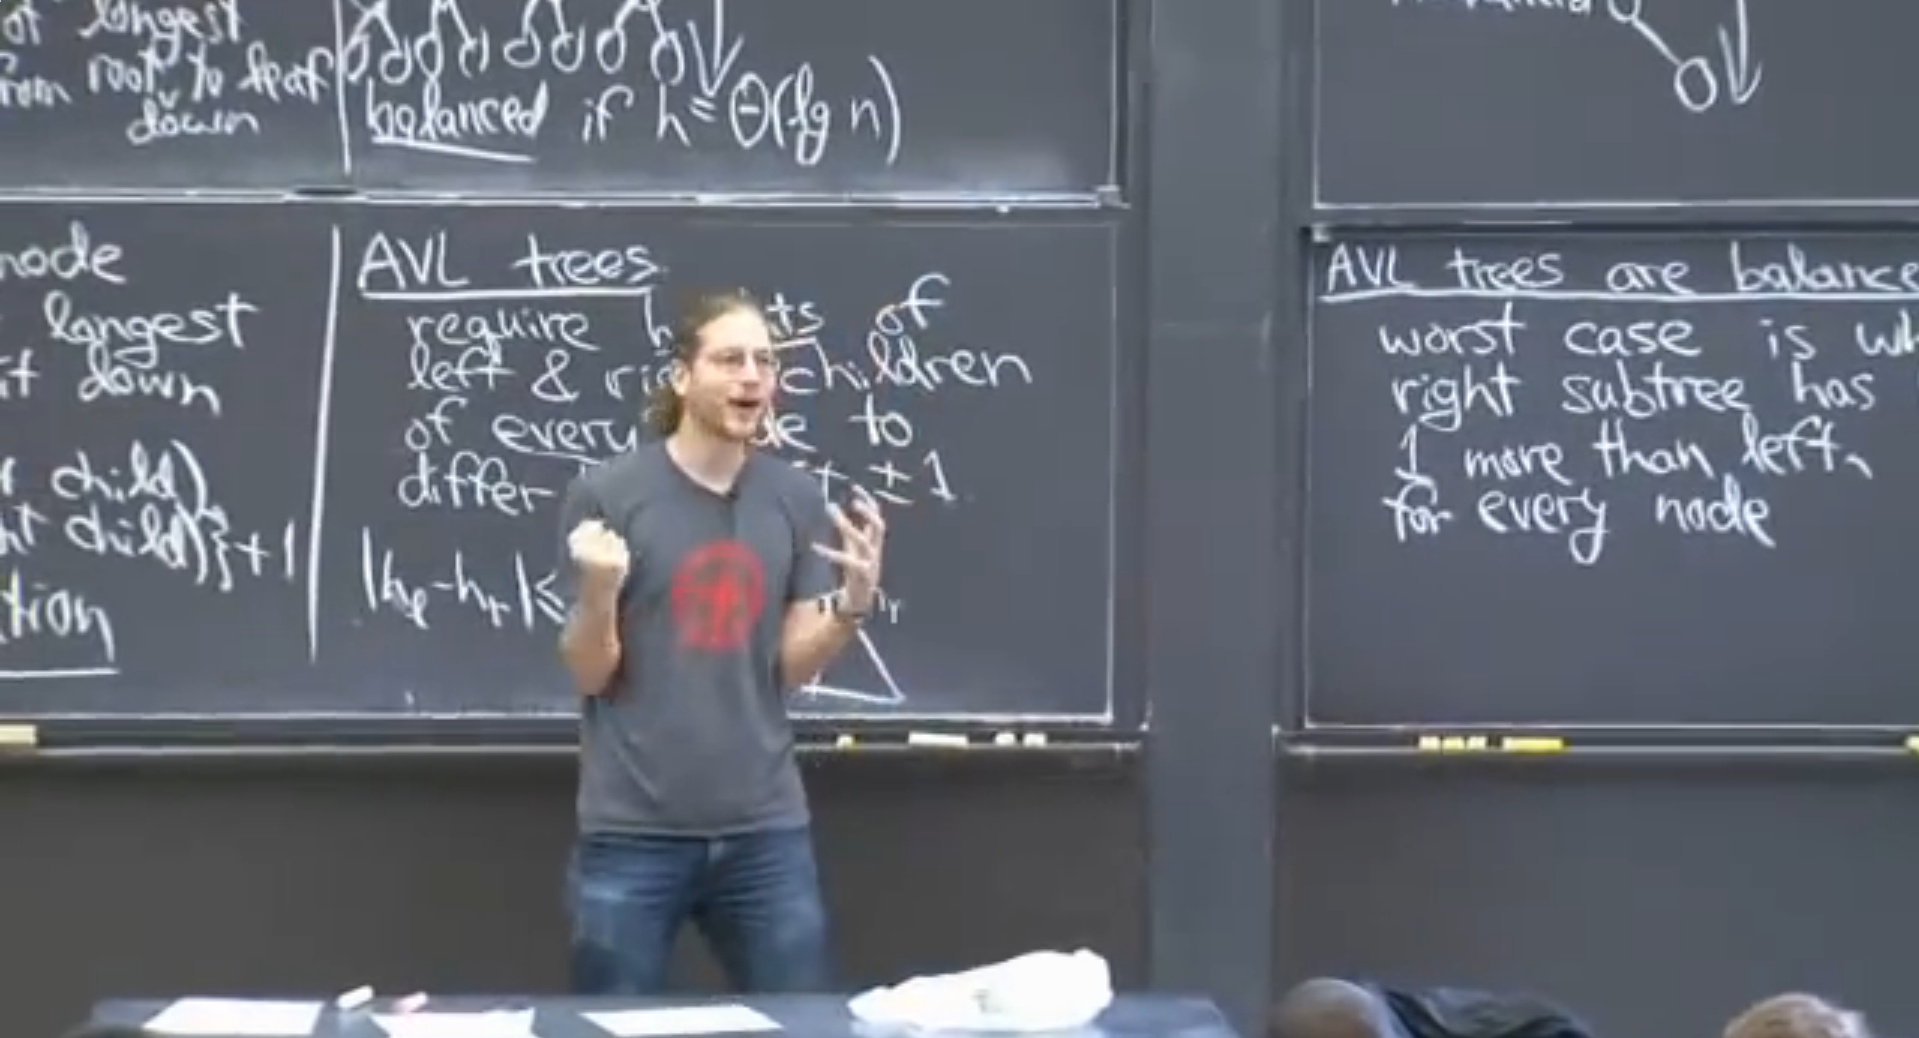 of longest
from root to leaf
down
balanced if h = Θ(lg n)
node
longest
it down
child),
child)}+1
AVL trees
require of
left & children
of every to
differ ±1
|hℓ-hr|≤
hr
AVL trees are balance
worst case is wh
right subtree has
1 more than left,
for every node